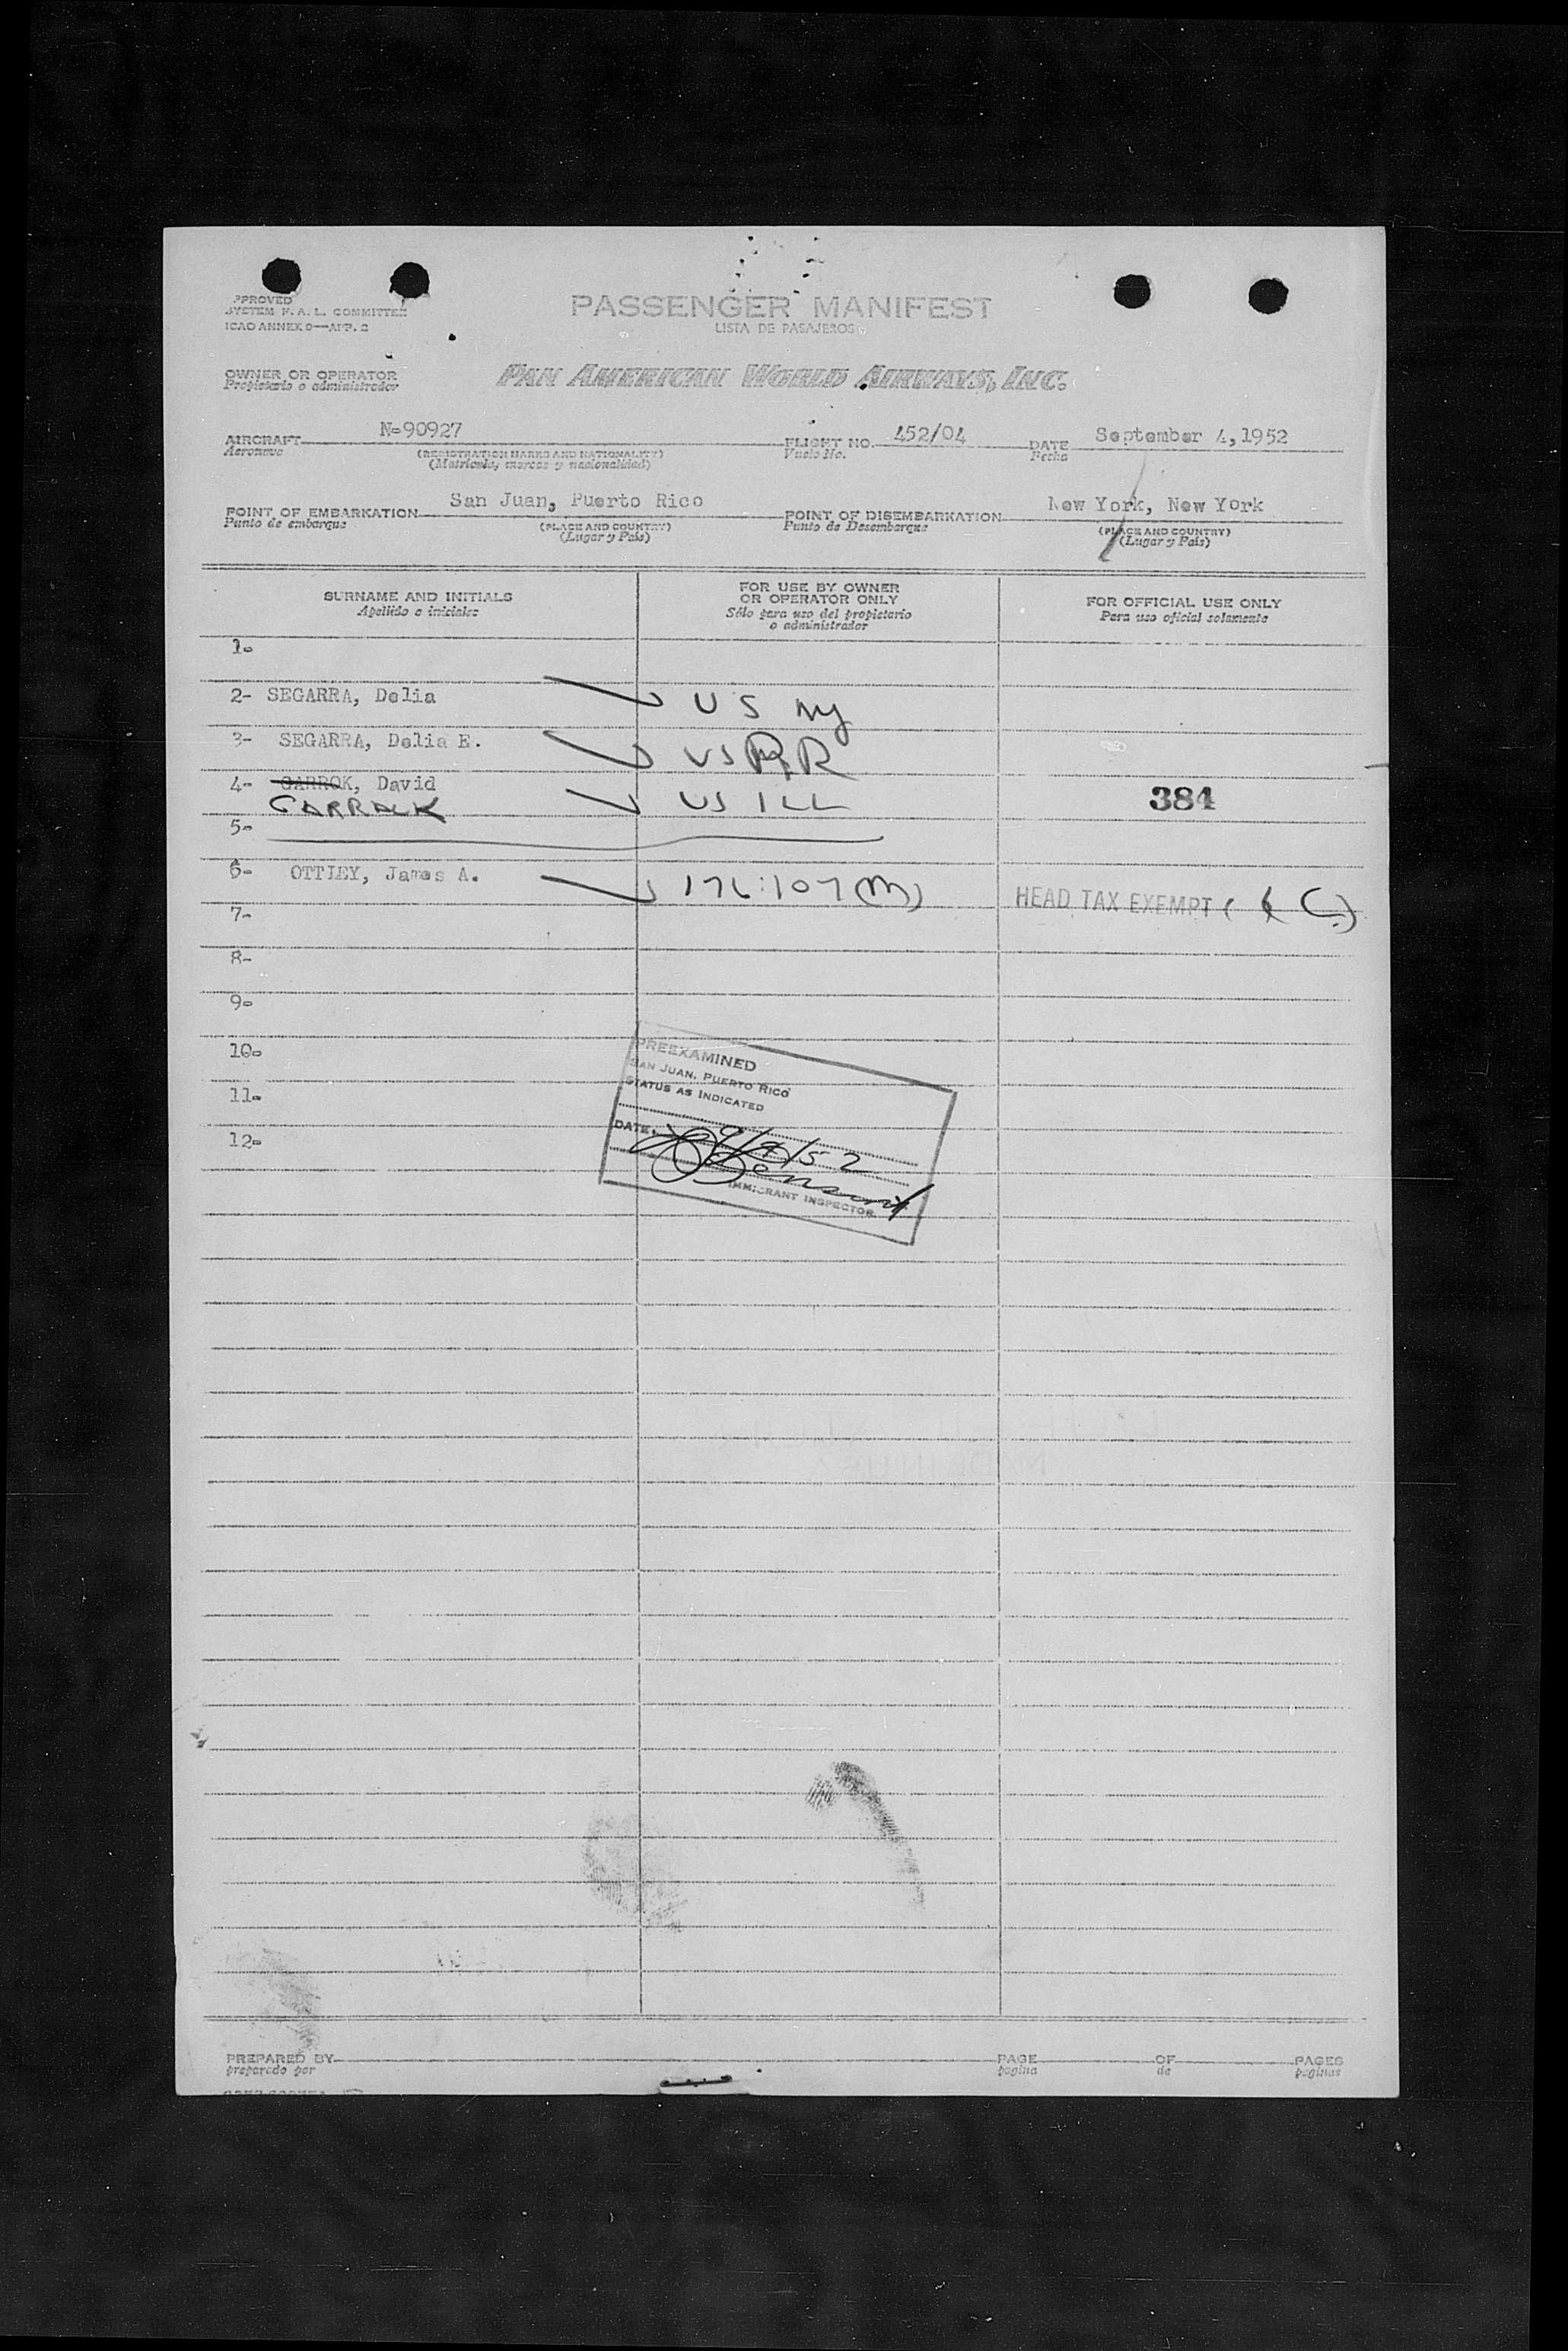 PPROVED
SYSTEM F. A. L. COMMITTEE
ICAO ANNEX 9—APP. 2
PASSENGER MANIFEST
LISTA DE PASAJEROS
OWNER OR OPERATOR
Propietario o administrador
PAN AMERICAN WORLD AIRWAYS, INC.
AIRCRAFT N-90927 FLIGHT NO. 452/04 DATE September 4, 1952
Aeronave (REGISTRATION MARKS AND NATIONALITY) Vuelo No. Fecha
(Matrícula, marcas y nacionalidad)
POINT OF EMBARKATION San Juan, Puerto Rico POINT OF DISEMBARKATION New York, New York
Punto de embarque (PLACE AND COUNTRY) Punto de Desembarque (PLACE AND COUNTRY)
(Lugar y País) (Lugar y País)
SURNAME AND INITIALS
Apellido e iniciales
FOR USE BY OWNER
OR OPERATOR ONLY
Sólo para uso del propietario
o administrador
FOR OFFICIAL USE ONLY
Para uso oficial solamente
1-
2- SEGARRA, Delia US NY
3- SEGARRA, Delia E. US PR
4- GARROK, David US ILL 384
GARRACK
5-
6- OTTLEY, James A. 176:107(M) HEAD TAX EXEMPT ( C)
7-
8-
9-
10-
11-
12-
PREEXAMINED
SAN JUAN, PUERTO RICO
STATUS AS INDICATED
DATE 9/4/52
IMMIGRANT INSPECTOR
PREPARED BY PAGE OF PAGES
preparado por pagina de paginas